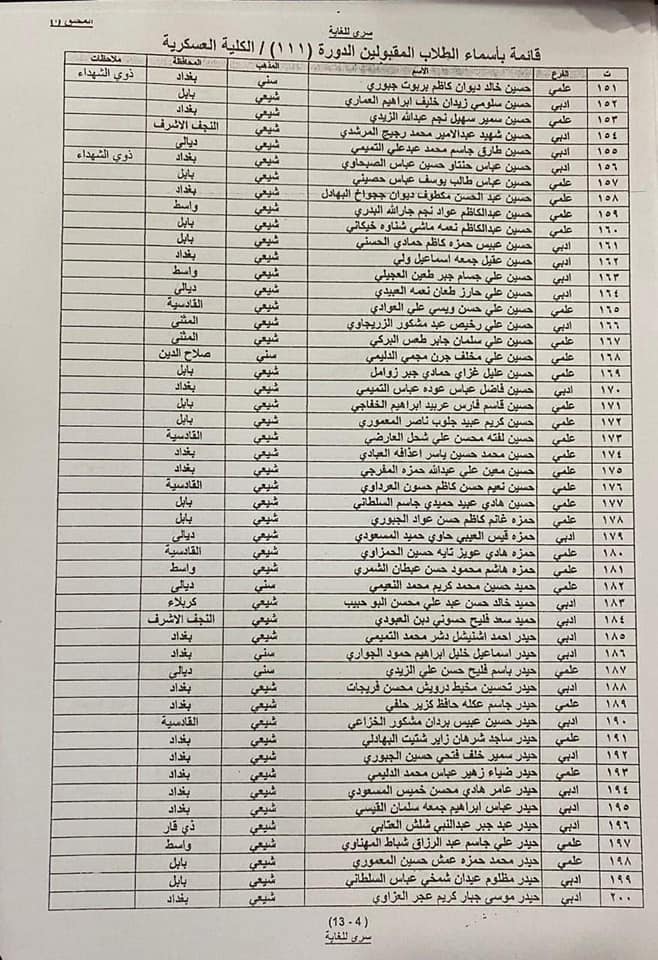 الملحق (أ)
سري للغاية
قائمة بأسماء الطلاب المقبولين الدورة (١١١) / الكلية العسكرية
ت الفرع الاسم المذهب المحافظة ملاحظات
١٥١ علمي حسين خالد ديوان كاظم بربوت جبوري سني بغداد ذوي الشهداء
١٥٢ ادبي حسين سلومي زيدان خليف ابراهيم العماري شيعي بابل
١٥٣ علمي حسين سمير سهيل نجم عبدالله الزيدي شيعي بغداد
١٥٤ ادبي حسين شهيد عبدالامير محمد رجيج المرشدي شيعي النجف الاشرف
١٥٥ ادبي حسين طارق جاسم محمد عبدعلي التميمي شيعي ديالى
١٥٦ ادبي حسين عباس حنتاو حسين عباس الصبحاوي شيعي بغداد ذوي الشهداء
١٥٧ علمي حسين عباس طالب يوسف عباس حصيني شيعي بابل
١٥٨ علمي حسين عبد الحسن مكطوف ديوان ججواخ البهادل شيعي بغداد
١٥٩ علمي حسين عبدالكاظم عواد نجم جارالله البدري شيعي واسط
١٦٠ علمي حسين عبدالكاظم نعمه ماشي شناوه خيكاني شيعي بابل
١٦١ ادبي حسين عبيس حمزه كاظم حمادي الحسني شيعي بابل
١٦٢ ادبي حسين عقيل جمعه اسماعيل ولي شيعي بغداد
١٦٣ ادبي حسين علي جسام جبر طعين العجيلي شيعي واسط
١٦٤ ادبي حسين علي حارز طعان نعمه العبيدي شيعي ديالى
١٦٥ علمي حسين علي حسن ويسي علي العوادي شيعي القادسية
١٦٦ ادبي حسين علي رخيص عبد مشكور الزريجاوي شيعي المثنى
١٦٧ علمي حسين علي سلمان جابر طعس البركي شيعي المثنى
١٦٨ علمي حسين علي مخلف جرن مجمي الدليمي سني صلاح الدين
١٦٩ علمي حسين عليل غزاي حمادي جبر زوامل شيعي بابل
١٧٠ ادبي حسين فاضل عباس عوده عباس التميمي شيعي بغداد
١٧١ علمي حسين قاسم فارس عربيد ابراهيم الخفاجي شيعي بابل
١٧٢ علمي حسين كريم عبيد جلوب ناصر المعموري شيعي بابل
١٧٣ علمي حسين لفته محسن علي شحل العارضي شيعي القادسية
١٧٤ علمي حسين محمد حسين ياسر اعذافه العبادي شيعي بغداد
١٧٥ علمي حسين معين علي عبدالله حمزه المفرجي شيعي بغداد
١٧٦ علمي حسين نعيم حسن كاظم حسون العرداوي شيعي القادسية
١٧٧ علمي حسين هادي عبيد حميدي جاسم السلطاني شيعي بابل
١٧٨ علمي حمزه غانم كاظم حسن عواد الجبوري شيعي بابل
١٧٩ ادبي حمزه قيس العيبي حاوي حميد المسعودي شيعي ديالى
١٨٠ علمي حمزه هادي عويز تايه حسين الحمزاوي شيعي القادسية
١٨١ علمي حمزه هاشم محمود حسن عبطان الشمري شيعي واسط
١٨٢ علمي حميد حسين محمد كريم محمد النعيمي سني ديالى
١٨٣ ادبي حميد خالد حسن عبد علي محسن البو حبيب شيعي كربلاء
١٨٤ ادبي حميد سعد فليح حسوني دبن العبودي شيعي النجف الاشرف
١٨٥ ادبي حيدر احمد اشنيشل دشر محمد التميمي شيعي بغداد
١٨٦ ادبي حيدر اسماعيل خليل ابراهيم حمود الجواري سني بغداد
١٨٧ علمي حيدر باسم فليح حسن علي الزيدي سني ديالى
١٨٨ ادبي حيدر تحسين مخيط درويش محسن فريجات شيعي بغداد
١٨٩ علمي حيدر جاسم عكله حافظ كزير حلفي شيعي بغداد
١٩٠ ادبي حيدر حسين عبيس بردان مشكور الخزاعي شيعي القادسية
١٩١ علمي حيدر ساجد شرهان زاير شتيت البهادلي شيعي بغداد
١٩٢ ادبي حيدر سمير خلف فتحي حسين الجبوري شيعي بغداد
١٩٣ علمي حيدر ضياء زهير عباس محمد الدليمي شيعي بغداد
١٩٤ ادبي حيدر عامر هادي محسن خميس المسعودي شيعي بغداد
١٩٥ ادبي حيدر عباس ابراهيم جمعه سلمان القيسي شيعي بغداد
١٩٦ ادبي حيدر عبد جبر عبدالنبي شلش العتابي شيعي ذي قار
١٩٧ علمي حيدر علي جاسم عبد الرزاق شباط المهناوي شيعي واسط
١٩٨ علمي حيدر محمد حمزه عمش حسين المعموري شيعي بابل
١٩٩ ادبي حيدر مظلوم عيدان شمخي عباس السلطاني شيعي بابل
٢٠٠ ادبي حيدر موسى جبار كريم عجر العزاوي شيعي بغداد
(13 - 4)
سري للغاية